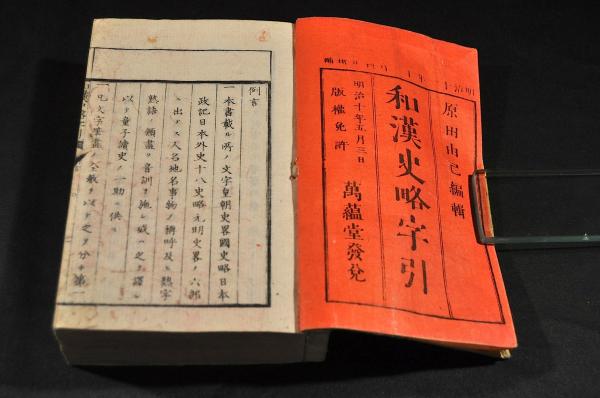 原田由己編輯
和漢史略字引
明治十年五月三日
版權免許
萬蘊堂發兌
例言
一本書載ル所ノ文字皇朝史畧國史略日本
政記日本外史十八史略元明史畧ノ六部
ニ出テス人名地名事物ノ稱呼及ヒ熟字
熟語ノ類盡ク音訓ヲ施シ或ハ之ヲ譯シ
以テ童子讀史ノ一助ニ供ス
一凡文字筆畫ノ多數ヲ以テ之ヲ分チ第一